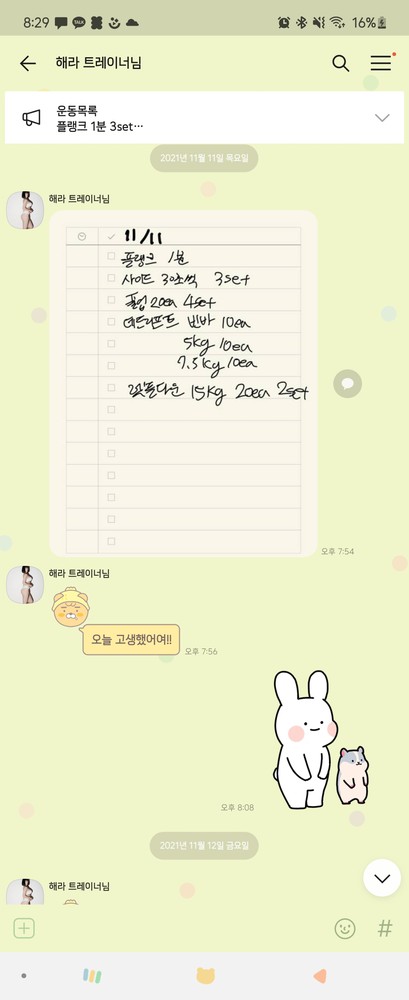 8:29
16%
해라 트레이너님
운동목록
플랭크 1분 3set…
2021년 11월 11일 목요일
해라 트레이너님
11/11
플랭크 1분
사이드 30초씩 3set
풀업 20ea 4set
데드리프트 빈바 10ea
5kg 10ea
7.5kg 10ea
렛풀다운 15kg 20ea 2set
오후 7:54
해라 트레이너님
오늘 고생했어여!!
오후 7:56
오후 8:08
2021년 11월 12일 금요일
해라 트레이너님
#